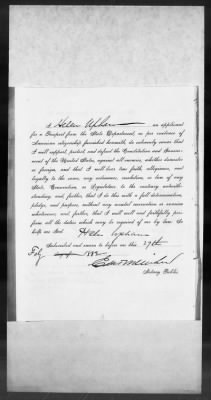 I Helen Upham an applicant
for a Passport from the State Department, as per evidence of
American citizenship furnished herewith, do solemnly swear that
I will support, protect, and defend the Constitution and Govern-
ment of the United States, against all enemies, whether domestic
or foreign, and that I will bear true faith, allegiance, and
loyalty to the same, any ordinance, resolution, or law of any
State, Convention, or Legislature to the contrary notwith-
standing; and further, that I do this with a full determination,
pledge, and purpose, without any mental reservation or evasion
whatsoever; and further, that I will well and faithfully per-
form all the duties which may be required of me by law. So
help me God.
Helen Upham
Subscribed and sworn to before me this 27th
1882
Notary Public